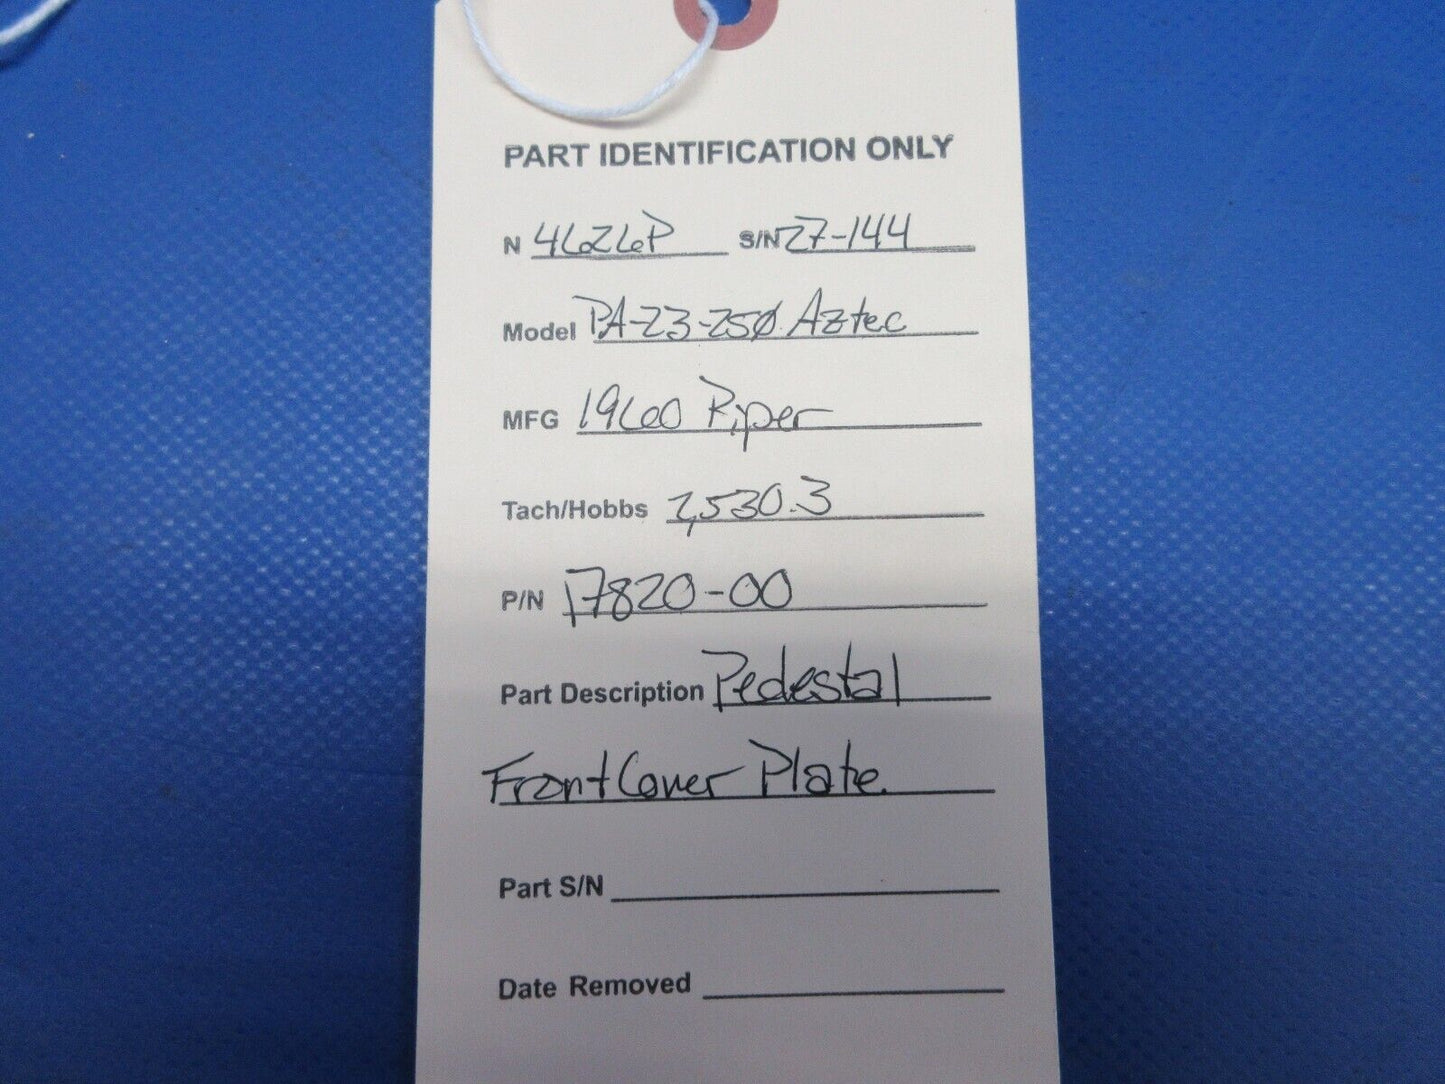 PART IDENTIFICATION ONLY
N 4626P S/N 27-144
Model PA-23-250 Aztec
MFG 1960 Piper
Tach/Hobbs 2,530.3
P/N 17820-00
Part Description Pedestal
Front Cover Plate
Part S/N
Date Removed